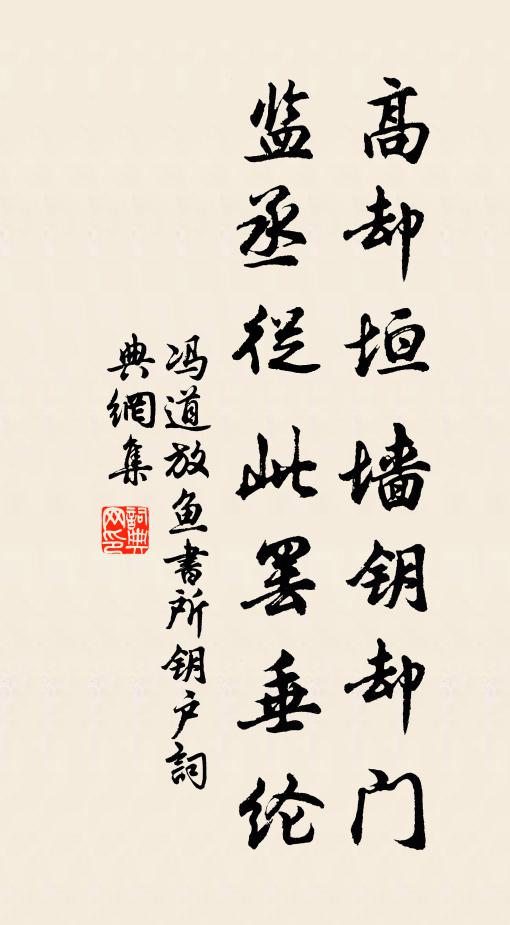 高却垣墙钥却门
监丞從此罢垂纶
冯道放鱼書所钥户詞
典網集
詞典
网印